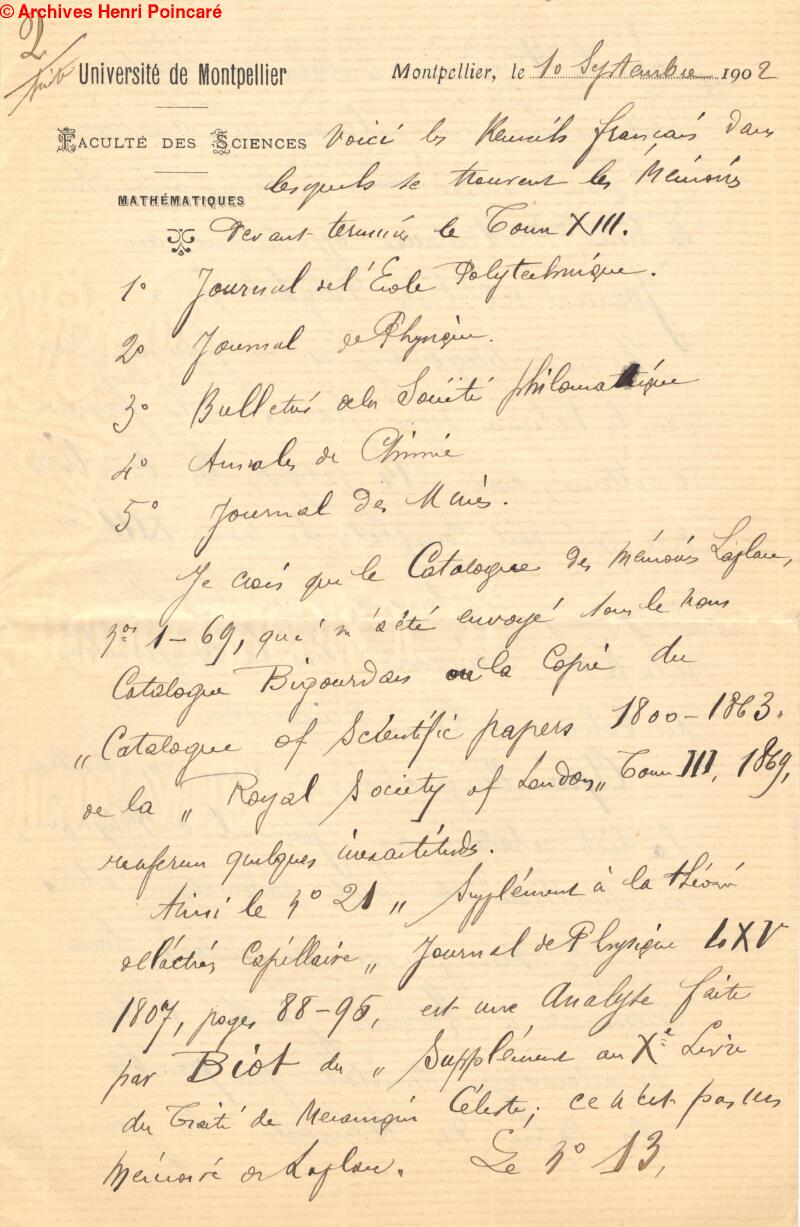 © Archives Henri Poincaré
2
Université de Montpellier
Montpellier, le 10 Septembre 1902
FACULTÉ DES SCIENCES
MATHÉMATIQUES
Voici les Recueils français dans
lesquels se trouvent les Mémoires
devant terminer le Tome XIII.
1º Journal de l'École Polytechnique.
2º Journal de Physique.
3º Bulletins de la Société philomatique
4º Annales de Chimie
5º Journal des Mines.
Je crois que le Catalogue des Mémoires Laplace,
nos 1–69, qui m'a été envoyé sous le nom
Catalogue Bigourdan ou la Copie du
„Catalogue of Scientific papers 1800–1863„
de la „Royal Society of London„ Tome III, 1869,
renferme quelques inexactitudes.
Ainsi le nº 21 „Supplément à la théorie
de l'action Capillaire„ Journal de Physique LXV
1807, pages 88–95, est une Analyse faite
par Biot du „Supplément au Xe Livre
du Traité de Mécanique Céleste; ce n'est pas un
Mémoire de Laplace. Le nº 13,